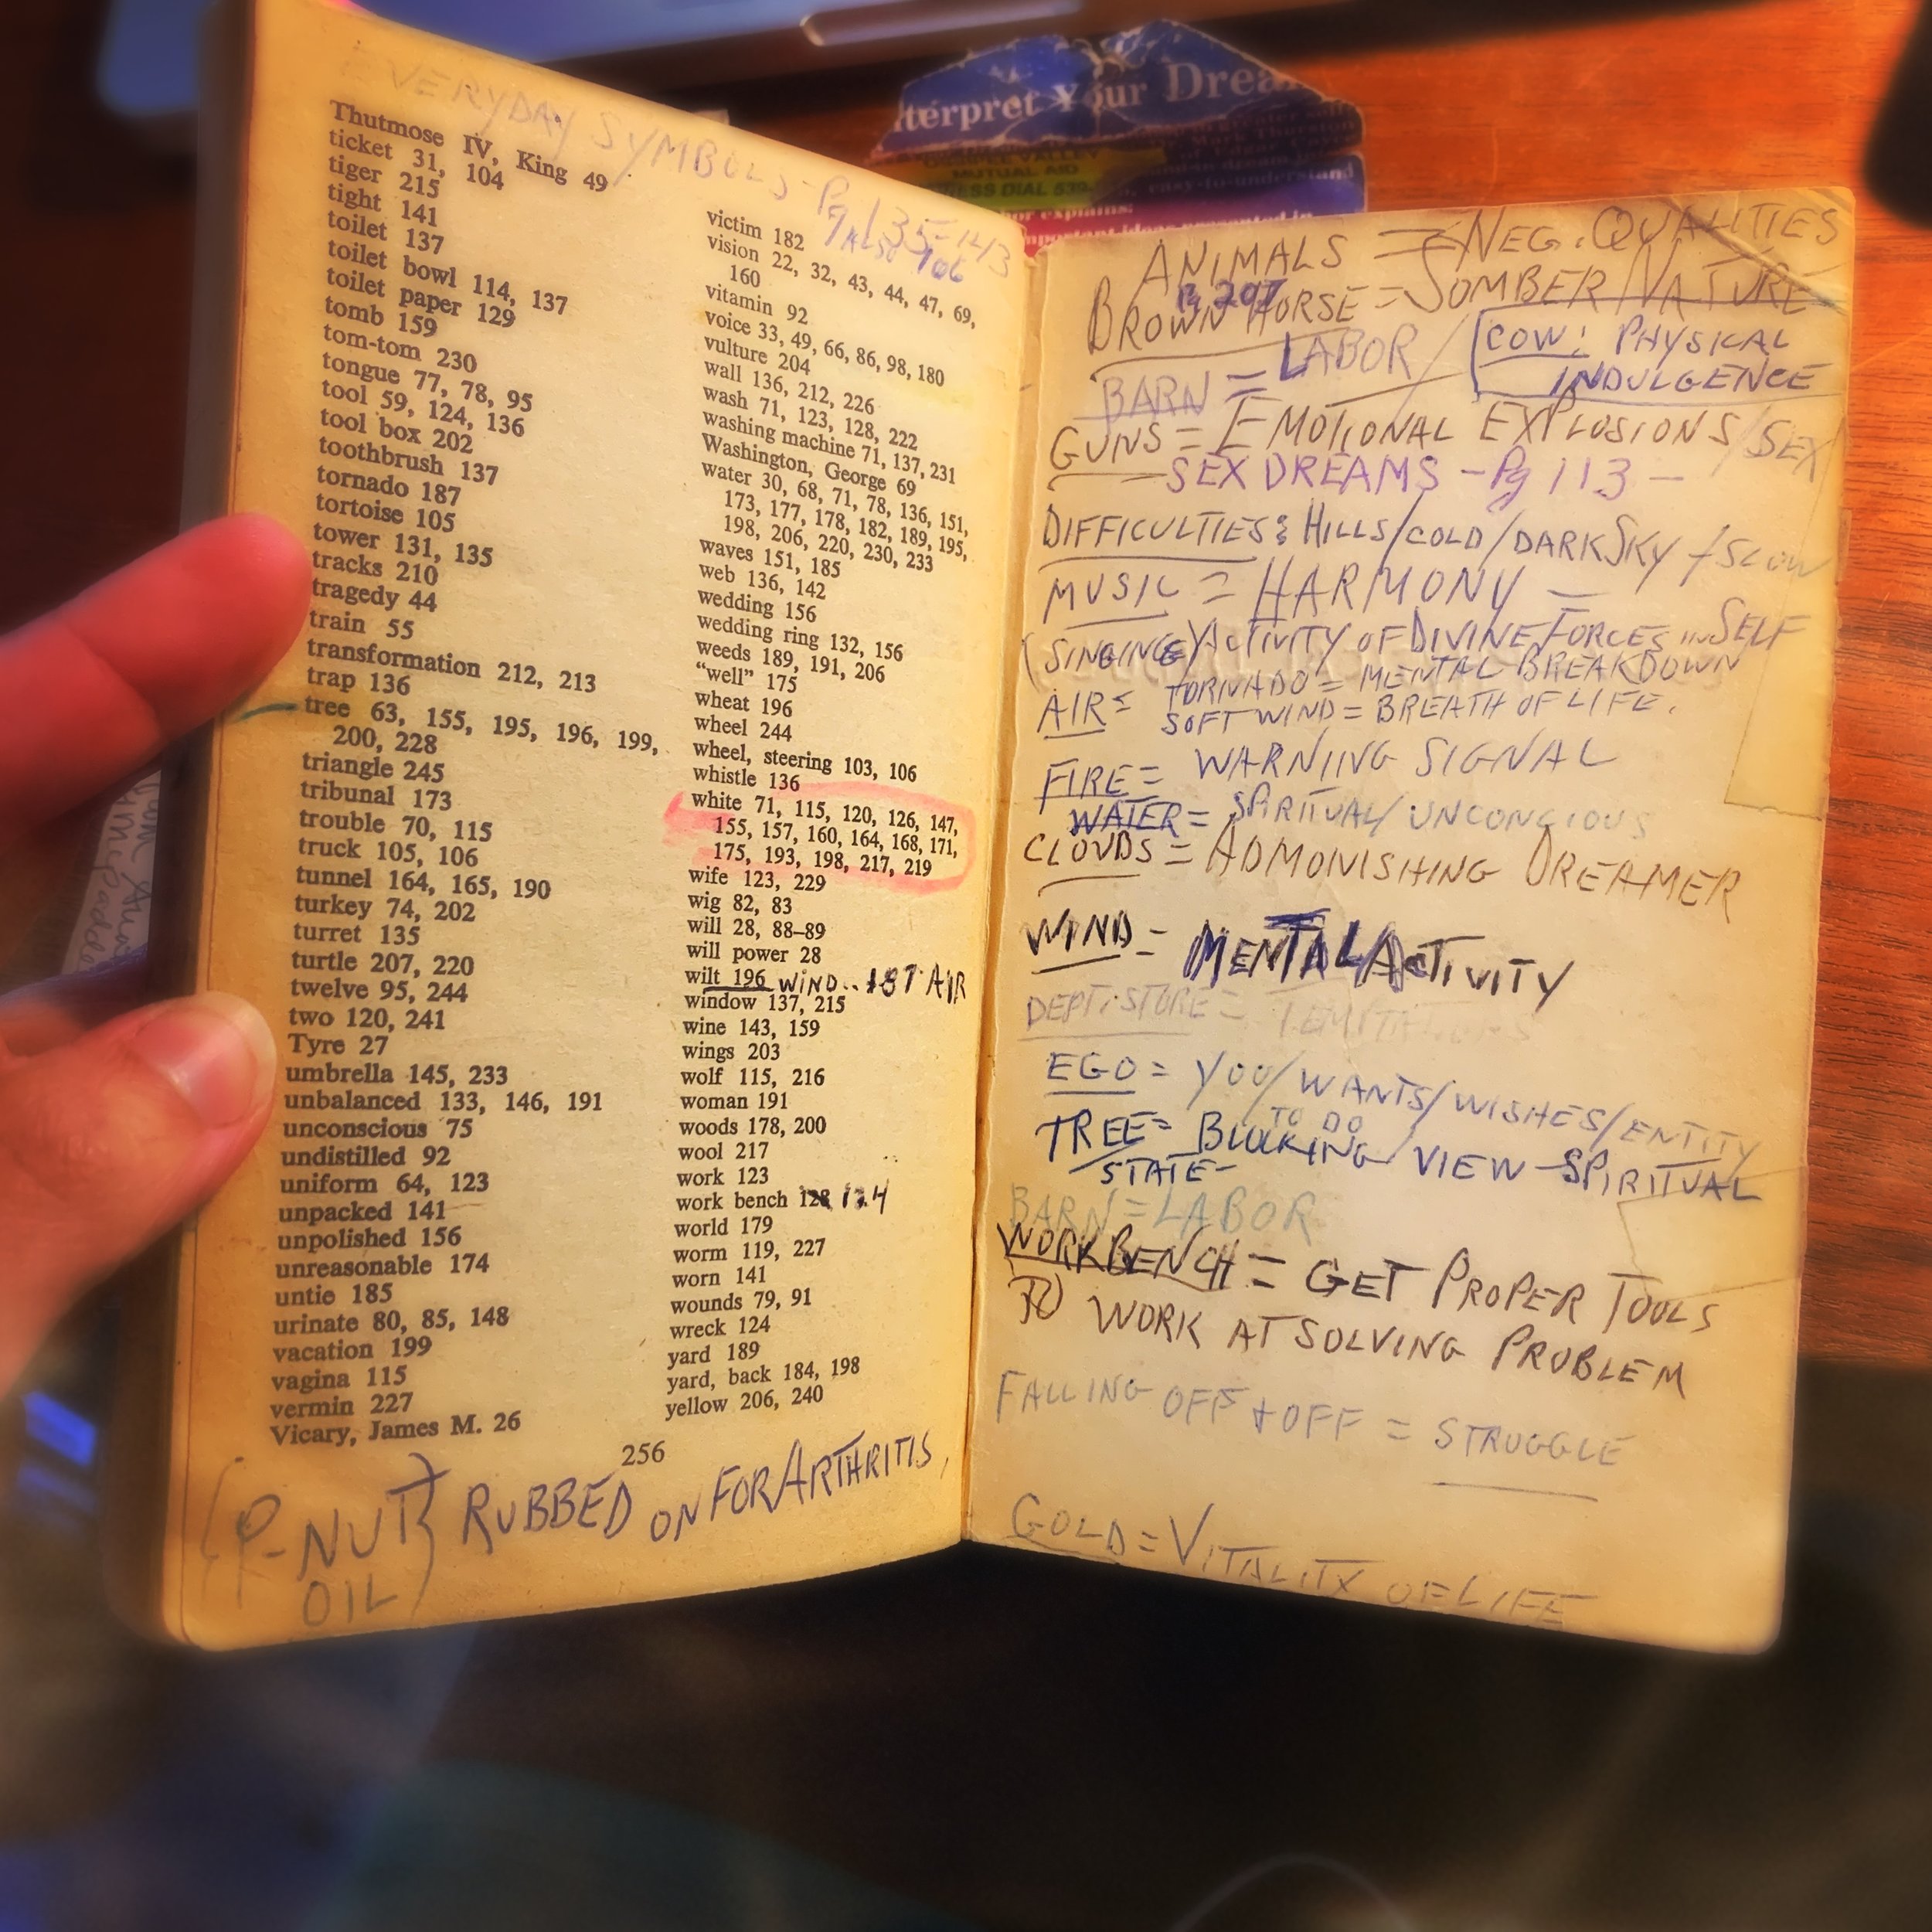 terpret Your Drea
MUTUAL AID
DIAL 539-
easy-to-understand
explains:
important ideas presented in
EVERYDAY SYMBOLS - Pg 135-143
ALSO 106
Thutmose IV, King 49
ticket 31, 104
tiger 215
tight 141
toilet 137
toilet bowl 114, 137
toilet paper 129
tomb 159
tom-tom 230
tongue 77, 78, 95
tool 59, 124, 136
tool box 202
toothbrush 137
tornado 187
tortoise 105
tower 131, 135
tracks 210
tragedy 44
train 55
transformation 212, 213
trap 136
tree 63, 155, 195, 196, 199,
200, 228
triangle 245
tribunal 173
trouble 70, 115
truck 105, 106
tunnel 164, 165, 190
turkey 74, 202
turret 135
turtle 207, 220
twelve 95, 244
two 120, 241
Tyre 27
umbrella 145, 233
unbalanced 133, 146, 191
unconscious 75
undistilled 92
uniform 64, 123
unpacked 141
unpolished 156
unreasonable 174
untie 185
urinate 80, 85, 148
vacation 199
vagina 115
vermin 227
Vicary, James M. 26
victim 182
vision 22, 32, 43, 44, 47, 69,
160
vitamin 92
voice 33, 49, 66, 86, 98, 180
vulture 204
wall 136, 212, 226
wash 71, 123, 128, 222
washing machine 71, 137, 231
Washington, George 69
water 30, 68, 71, 78, 136, 151,
173, 177, 178, 182, 189, 195,
198, 206, 220, 230, 233
waves 151, 185
web 136, 142
wedding 156
wedding ring 132, 156
weeds 189, 191, 206
"well" 175
wheat 196
wheel 244
wheel, steering 103, 106
whistle 136
white 71, 115, 120, 126, 147,
155, 157, 160, 164, 168, 171,
175, 193, 198, 217, 219
wife 123, 229
wig 82, 83
will 28, 88–89
will power 28
wilt 196 WIND.. 187 AIR
window 137, 215
wine 143, 159
wings 203
wolf 115, 216
woman 191
woods 178, 200
wool 217
work 123
work bench 128 124
world 179
worm 119, 227
worn 141
wounds 79, 91
wreck 124
yard 189
yard, back 184, 198
yellow 206, 240
256
(P-NUT) RUBBED ON FOR ARTHRITIS,
OIL
ANIMALS = NEG. QUALITIES
Pg 207
BROWN HORSE = SOMBER NATURE
BARN = LABOR / COW: PHYSICAL
INDULGENCE
GUNS = EMOTIONAL EXPLOSIONS/SEX
SEX DREAMS - Pg 113 -
DIFFICULTIES: HILLS/COLD/DARK SKY + SLOW
MUSIC = HARMONY =
(SINGING) ACTIVITY OF DIVINE FORCES IN SELF
AIR = TORNADO = MENTAL BREAKDOWN
SOFT WIND = BREATH OF LIFE.
FIRE = WARNIING SIGNAL
WATER = SPIRITUAL/UNCONCIOUS
CLOUDS = ADMONISHING DREAMER
WIND = MENTAL ACTIVITY
DEPT. STORE =
EGO = YOU/WANTS/WISHES/ENTITY
TO DO
TREE = BLOCKING VIEW - SPIRITUAL
STATE-
BARN = LABOR
WORKBENCH = GET PROPER TOOLS
TO WORK AT SOLVING PROBLEM
FALLING OFF + OFF = STRUGGLE
GOLD = VITALITY OF LIFE